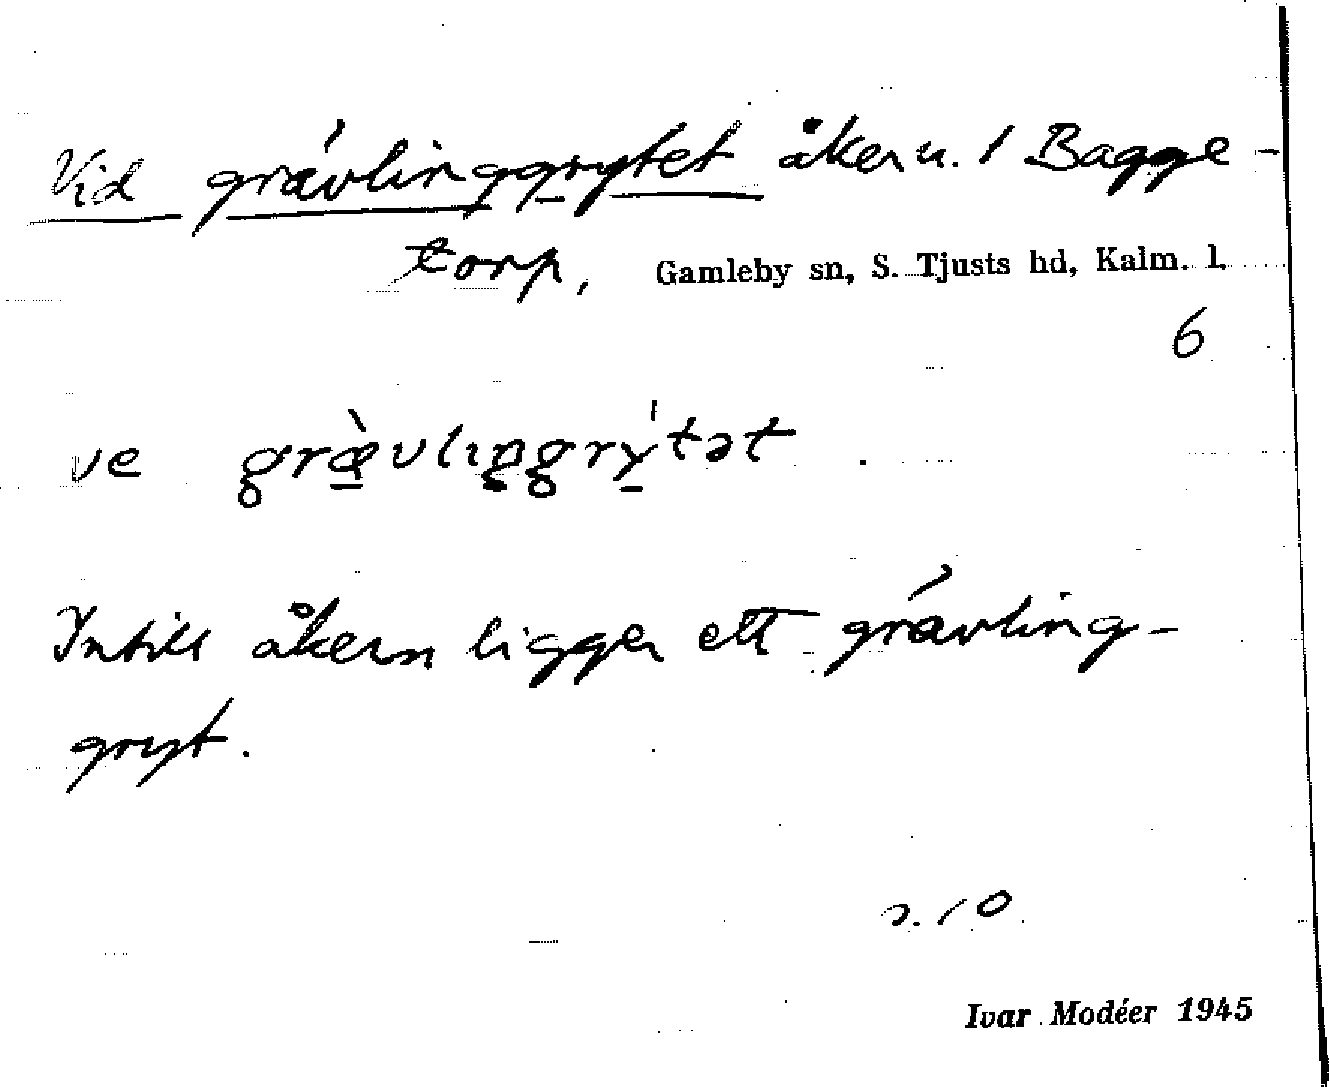 Vid grävlinggrytet åker u. / Bagge-
torp, Gamleby sn, S. Tjusts hd, Kalm. l.
6
ve græ̀vlıŋgry̍tət .
Intill åkern ligger ett grävling-
gryt.
s. 10
Ivar Modéer 1945